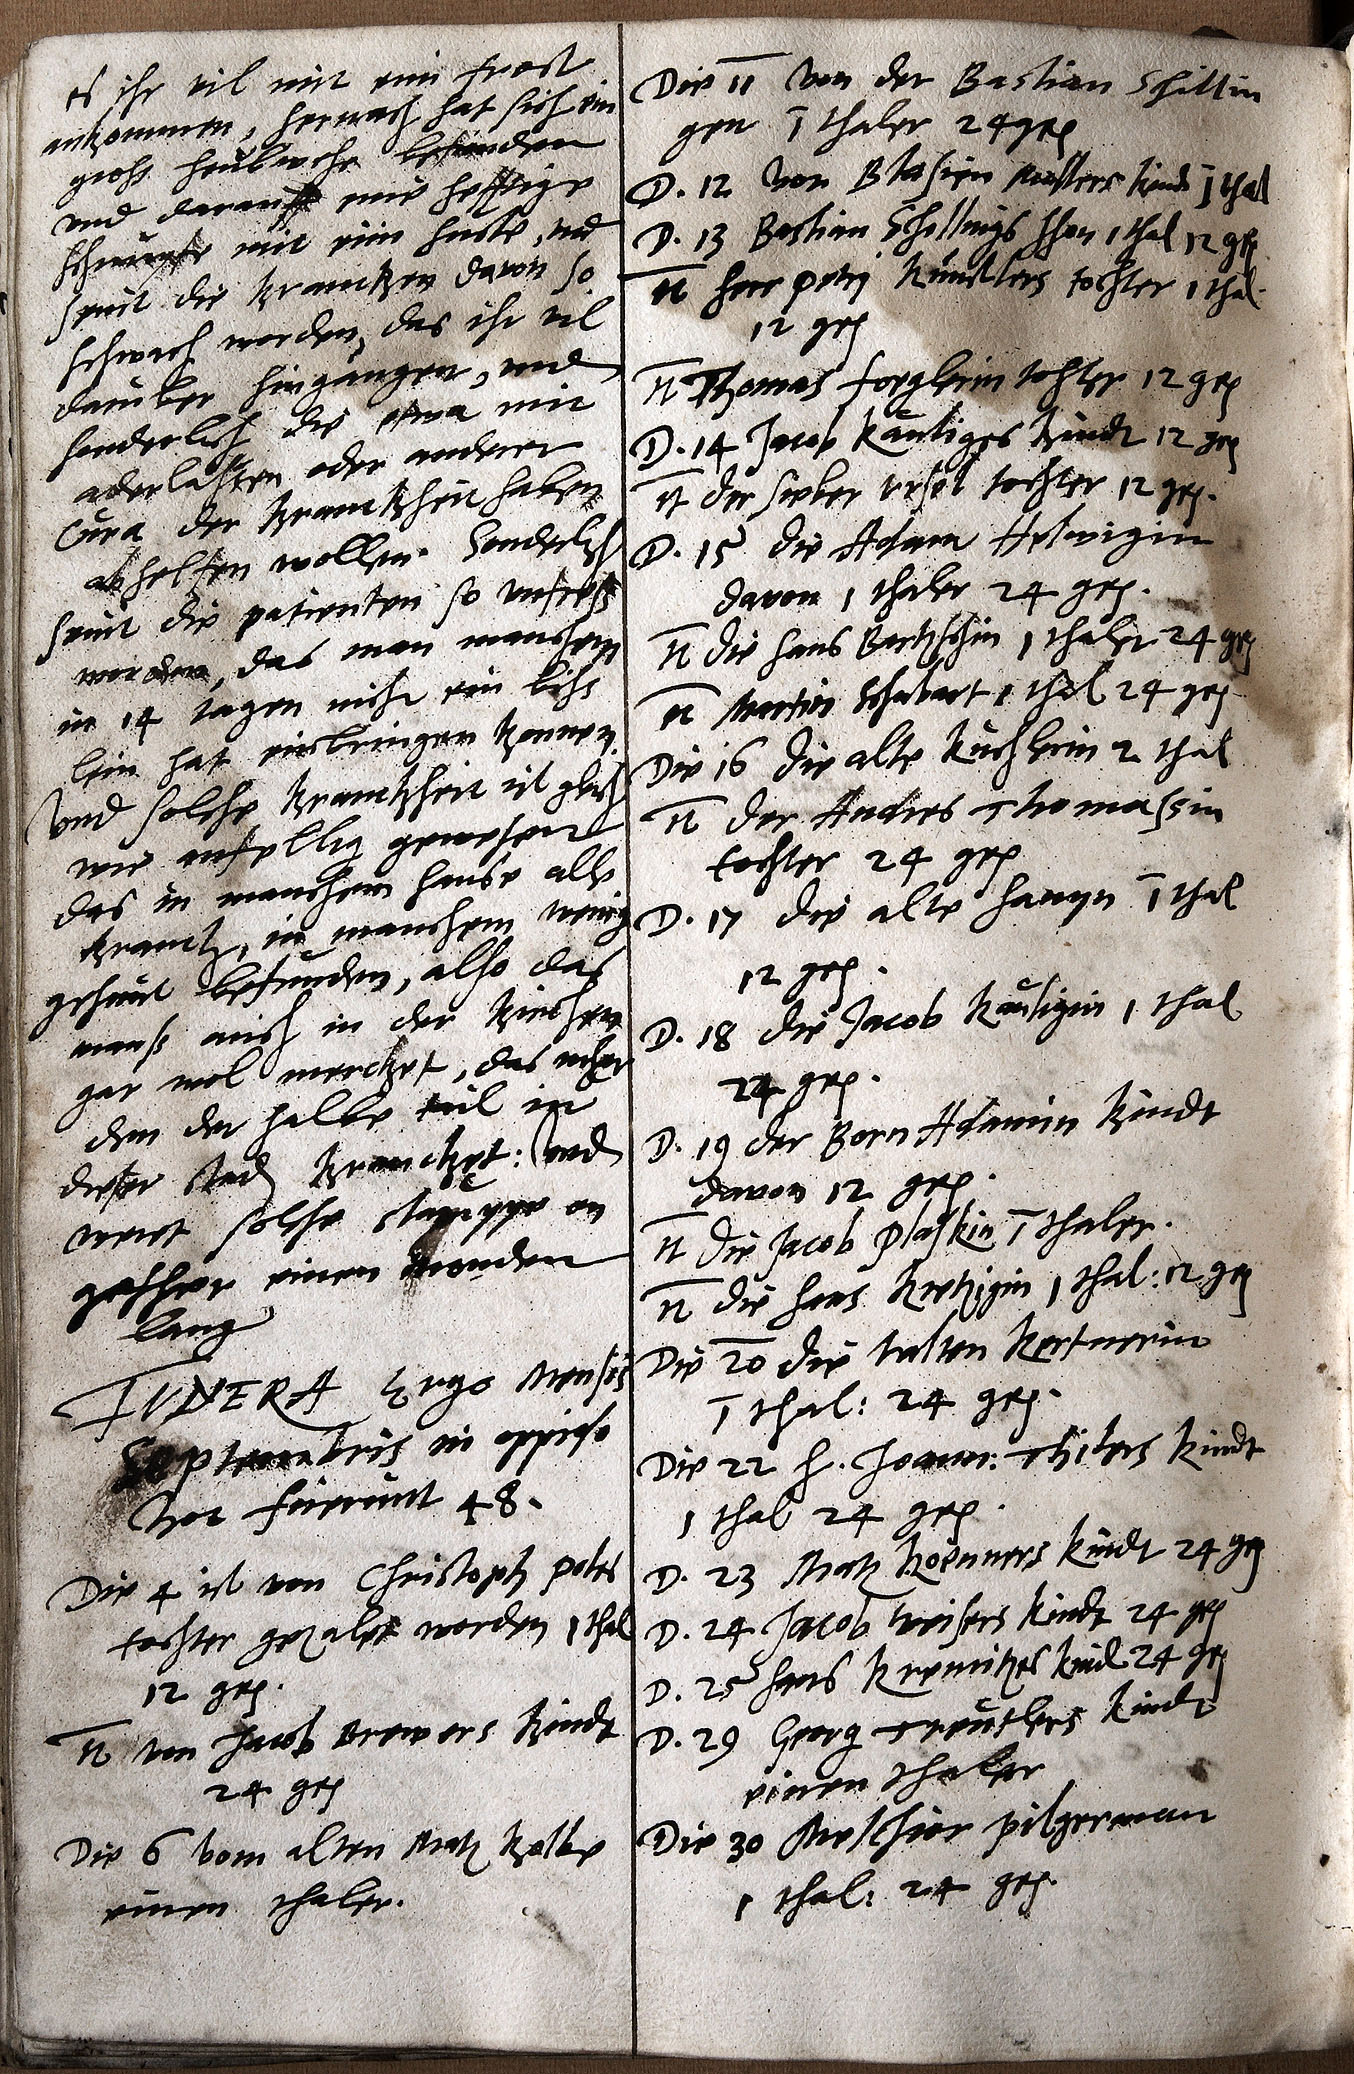 es ihr vil mit eim frost
ankommen, hernach hat sich ein
gross heubwehe befunden
und darauff eine hefftige
schnuppe mit eim huste, und
seint die krancken davon so
schwach worden, das ihr vil
daruber hingangen, und
sonderlich die etwa mit
aderlassen oder anderer
Cura der kranckheit haben
abhelffen wollen. Sonderlich
seint die patienten so
worden, das man manchem
in 14 tagen nicht ein biss
lein hat einbringen konnen.
Und solche kranckheit ist gleich
wie anfellig gewesen
das in manchem hause alle
kranck, in manchem wenig
gesunt befunden, also das
mans auch in der kirchen
gar wol mercket, das
den der halbe teil in
dieser stad krancket: Und
weret solche staruppe on
gefher einen monden
lang
FUNERA Ergo Mensis
Septembris in oppido
hoc fuerunt 48.
Die 4 ist von Christoph
tochter gezalet worden 1 thal
12 gr.
π von Jacob Brewers kindt
24 gr
Die 6 vom alten Matz Kolbe
einen thaler.
Die 11 von der Bastian Schillin
gen 1 thaler 24 gr
D. 12 von Blasien kindt 1 thal
D. 13 Bastian Schillings 1 thal 12 gr
π herr Petri Künstlers tochter 1 thal
12 gr
π Thomas tochter 12 gr
D. 14 Jacob Kautiges kindt 12 gr
π der tochter 12 gr.
D. 15 die Adam Helwigin
davon 1 thaler 24 gr.
π die Hans Bertschin 1 thaler 24 gr
π Martin Schubart 1 thal 24 gr
Die 16 die alte Kuchlerin 2 thal
π der Andres Thomassin
tochter 24 gr
D. 17 die alte 1 thal
12 gr.
D. 18 die Jacob Kautigin 1 thal
24 gr.
D. 19 der Born Adamin kindt
davon 12 gr.
π die Jacob Plaskin 1 thaler.
π die Hans 1 thal: 12 gr
Die 20 die Kertnerin
1 thal: 24 gr.
Die 22 h. kindt
1 thal 24 gr.
D. 23 Matz kindt 24 gr
D. 24 Jacob kindt 24 gr
D. 25 Hans kind 24 gr
D. 29 Georg Treutlers kindt
einen thaler
Die 30 Melchior Pilgerman
1 thal: 24 gr.